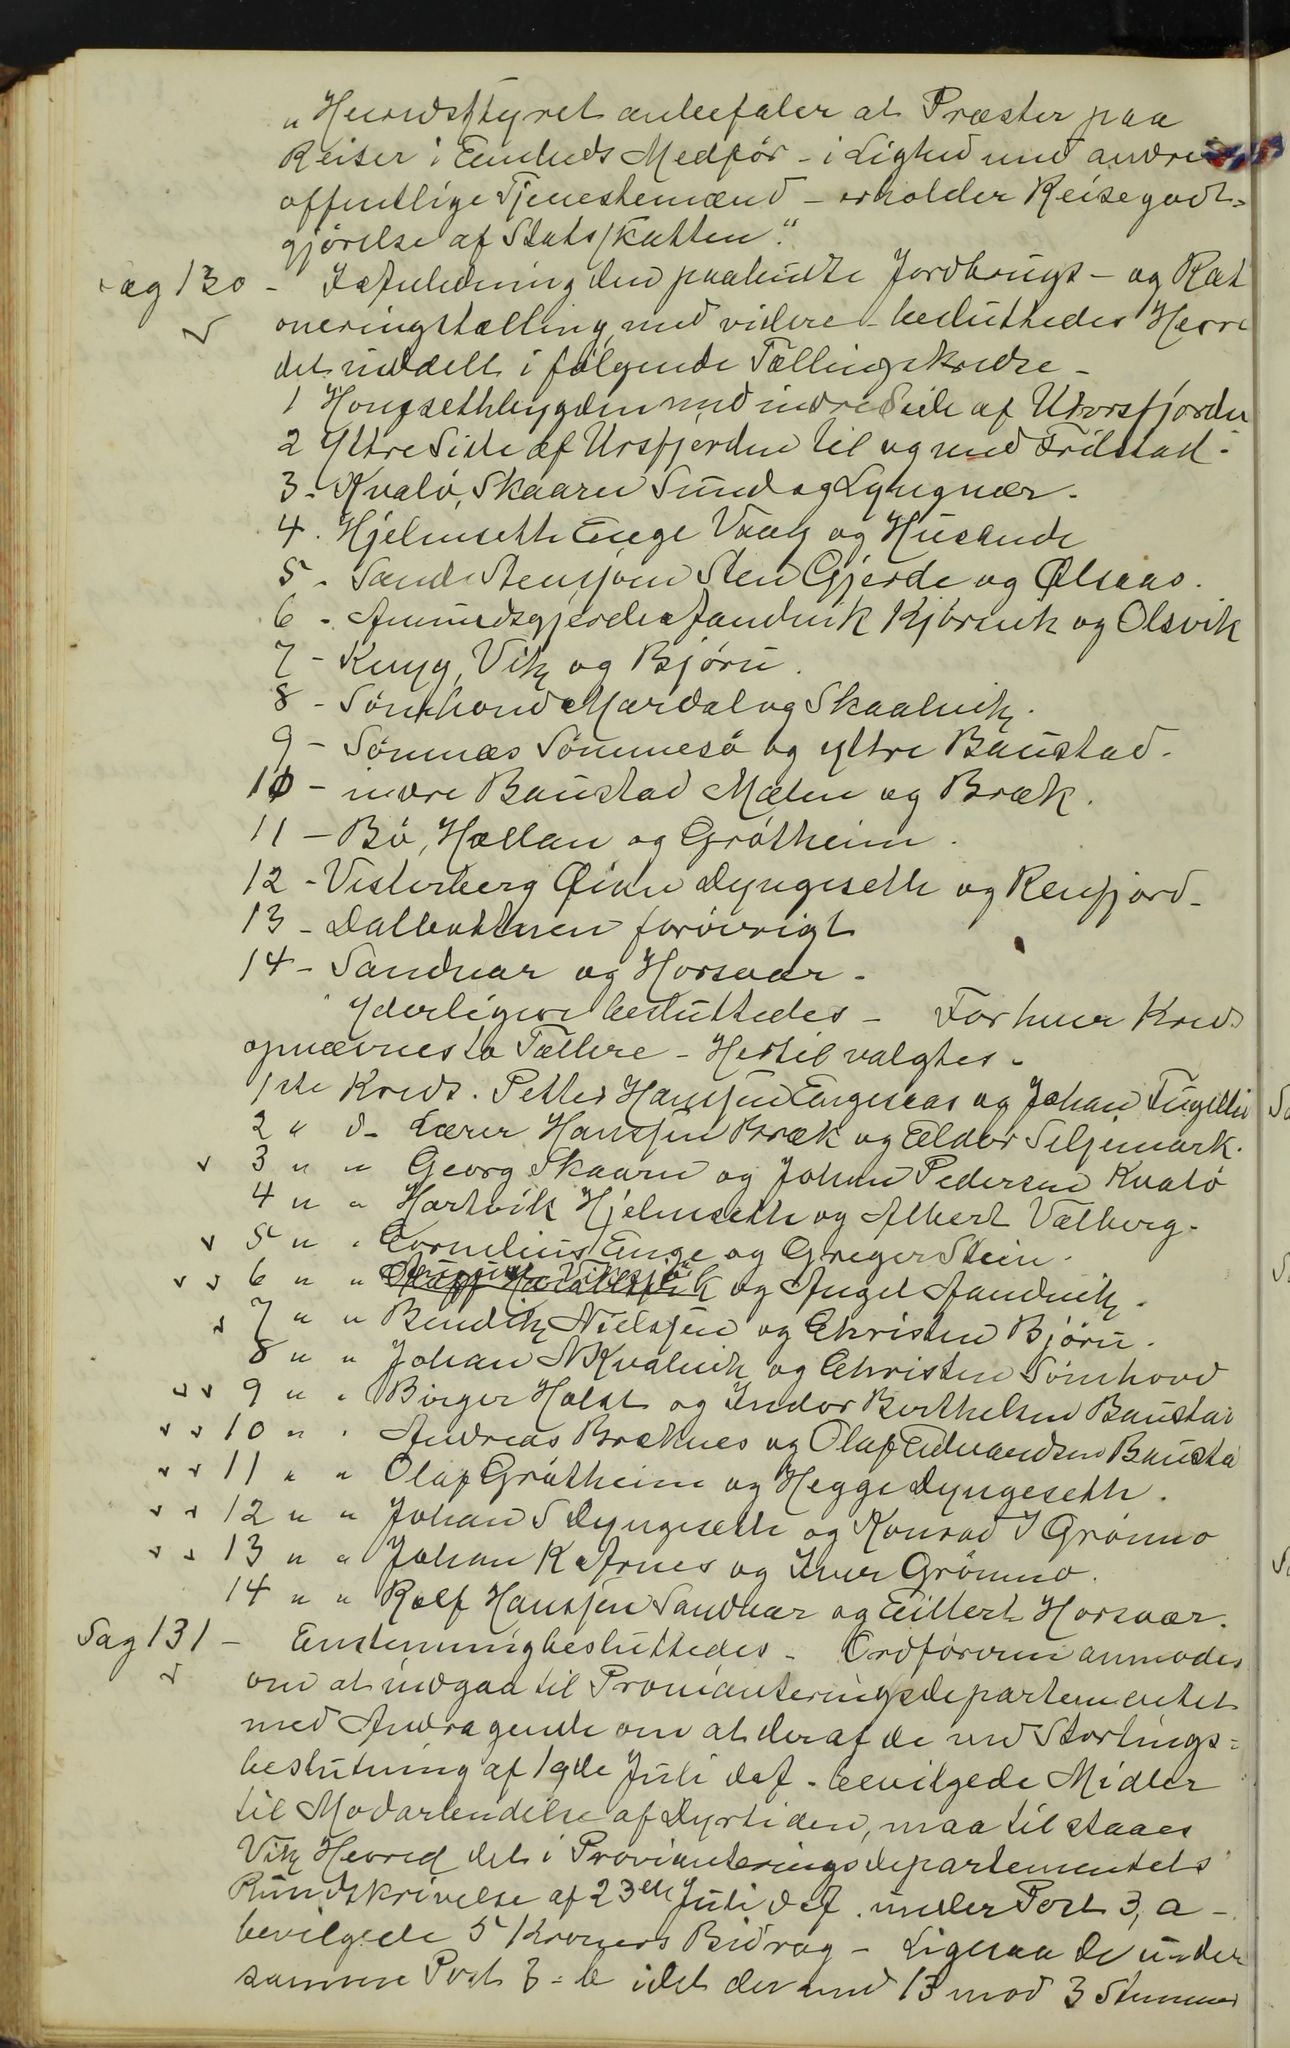 „Herredsstyret anbefaler at Præster paa
Reiser i Embeds Medför - i Lighed med andre
offentlige Tjenestemænd - erholder Reisegodt-
gjörelse af Statskatten."
Sag 130 - I Anledning den paabudte Jordbrugs- og Rat
oneringstælling med videre - besluttedes Herre
det inddelt i følgende Tællingskredse -
1 Hongsethbygden med indre Side af Ursfjorden
2 Yttre Side af Ursfjorden til og med Frilstad -
3 - Kvalö, Skaaren Sund og Lyngvær -
4. Hjelmseth Enge Vaag og Husande
5 - Sande Stensjöen Sten Gjerde og Ølsaas.
6 - Amundsgjerde Aandvik Kjörsvik og Olsvik
7 - Kvug, Vik og Bjørn.
8 - Sömhovd Mardal og Skaalvik.
9 - Sömnæs Sömnesö og yttre Baustad.
10 - indre Baustad Mælen og Bræk.
11 - Bö, Hællan og Gröttheim.
12 - Vesterberg Øien Dyngeseth og Renfjord -
13 - Dalbotnen forövrigt
14 - Sandvær og Horsvær -
Yderligere besluttedes - For hver Kreds
opnævnes to Tællere - Hertil valgtes -
1ste Kreds. Petter Hanssen Engesaas og Johan
2 " d - Lærer Hanssen Bræk og Eldor Seljemark.
v 3 " " Georg Skaaren og Johan Pedersen Kvalö
4 " " Hartvik Hjelmseth og Albert Valberg -
v 5 " " Cornelius Enge og Greger Stein.
v v 6 " " og Angel Aandvik -
v 7 " " Bendik Nielssen og Christen Bjørn.
8 " " Johan N Kvalvik og Christen Sömhovd
v v 9 " " Birger Holst og Indor Berthelsen Baustad
v v 10 " " Andreas Bræknes og Olaf Edvardsen Bausta
v v 11 " " Olaf Gröttheim og Hegge Dyngeseth.
v v 12 " " Johan S Dyngeseth og Konrad I Grönmo
v v 13 " " Johan K Aarnes og Iver Grönmo.
14 " " Rolf Hanssen Sandvær og Eilert Horsvær.
Sag 131 - Enstemmig besluttedes - Ordföreren anmodes
v om at indgaa til Provianteringsdepartementet
med Andragende om at der af de ved Stortings-
beslutning af 19de Juli d.A. bevilgede Midler
til Modarbeidelse af Dyrtiden, maa tilstaaes
Vik Herred det i Provianteringsdepartementets
Rundskrivelse af 23de Juli d.A. under Post 3, a -
bevilgede 5 Kroners Bidrag - Ligesaa de under
samme Post 3 - b idet der med 13 mod 3 Stemmer